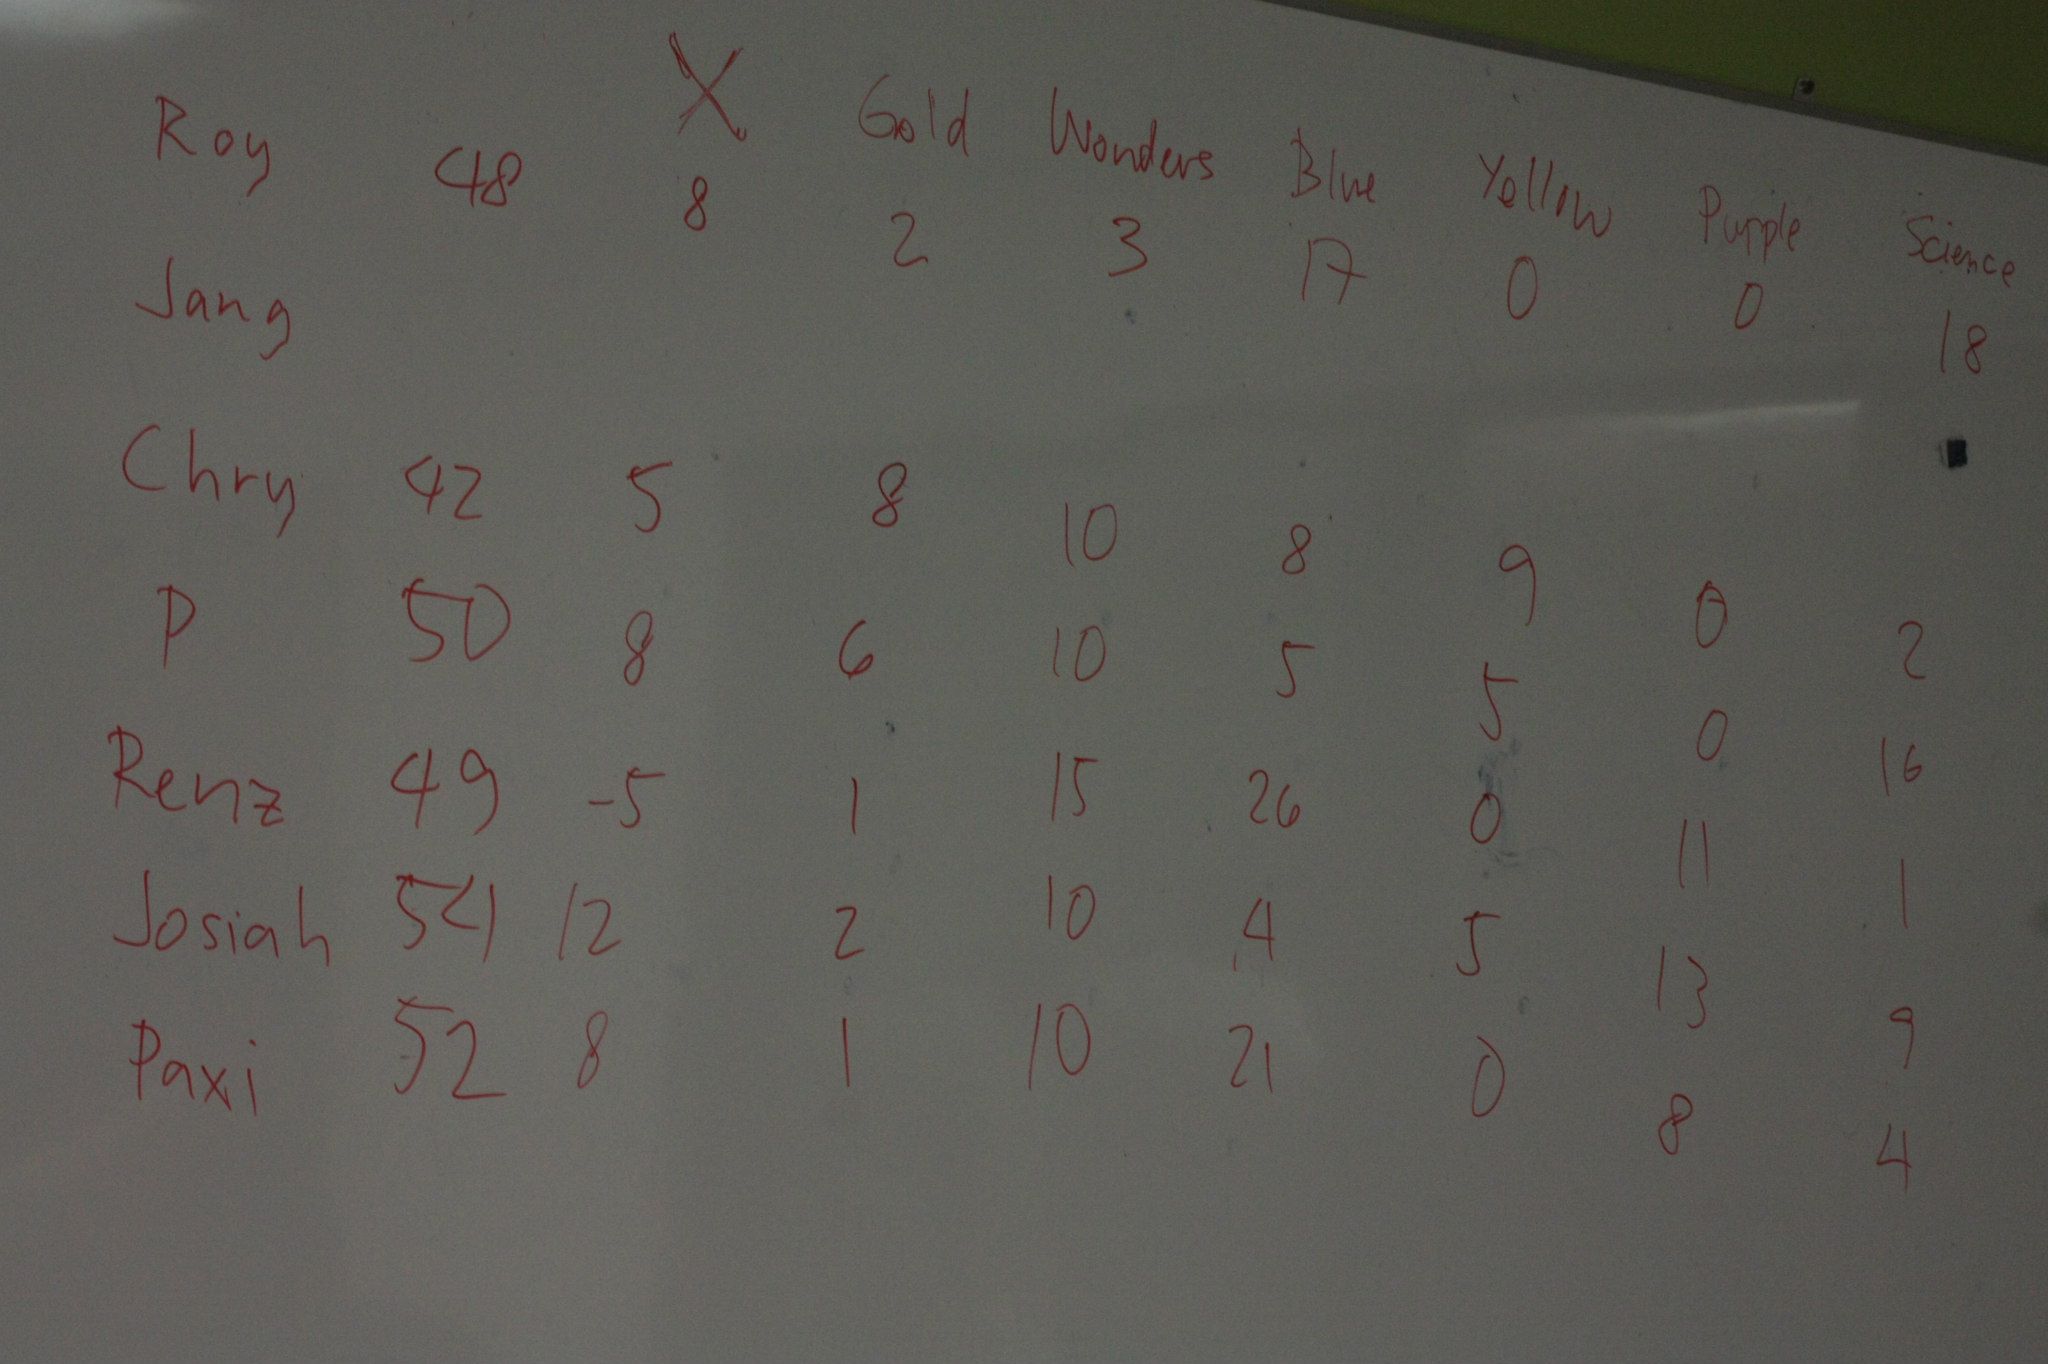 Roy 48 X Gold Wonders Blue Yellow Purple Science
8 2 3 17 0 0 18
Jang
Chry 42 5 8 10 8 9 0 2
P 50 8 6 10 5 5 0 16
Renz 49 -5 1 15 26 0 11 1
Josiah 54 12 2 10 4 5 13 9
Paxi 52 8 1 10 21 0 8 4